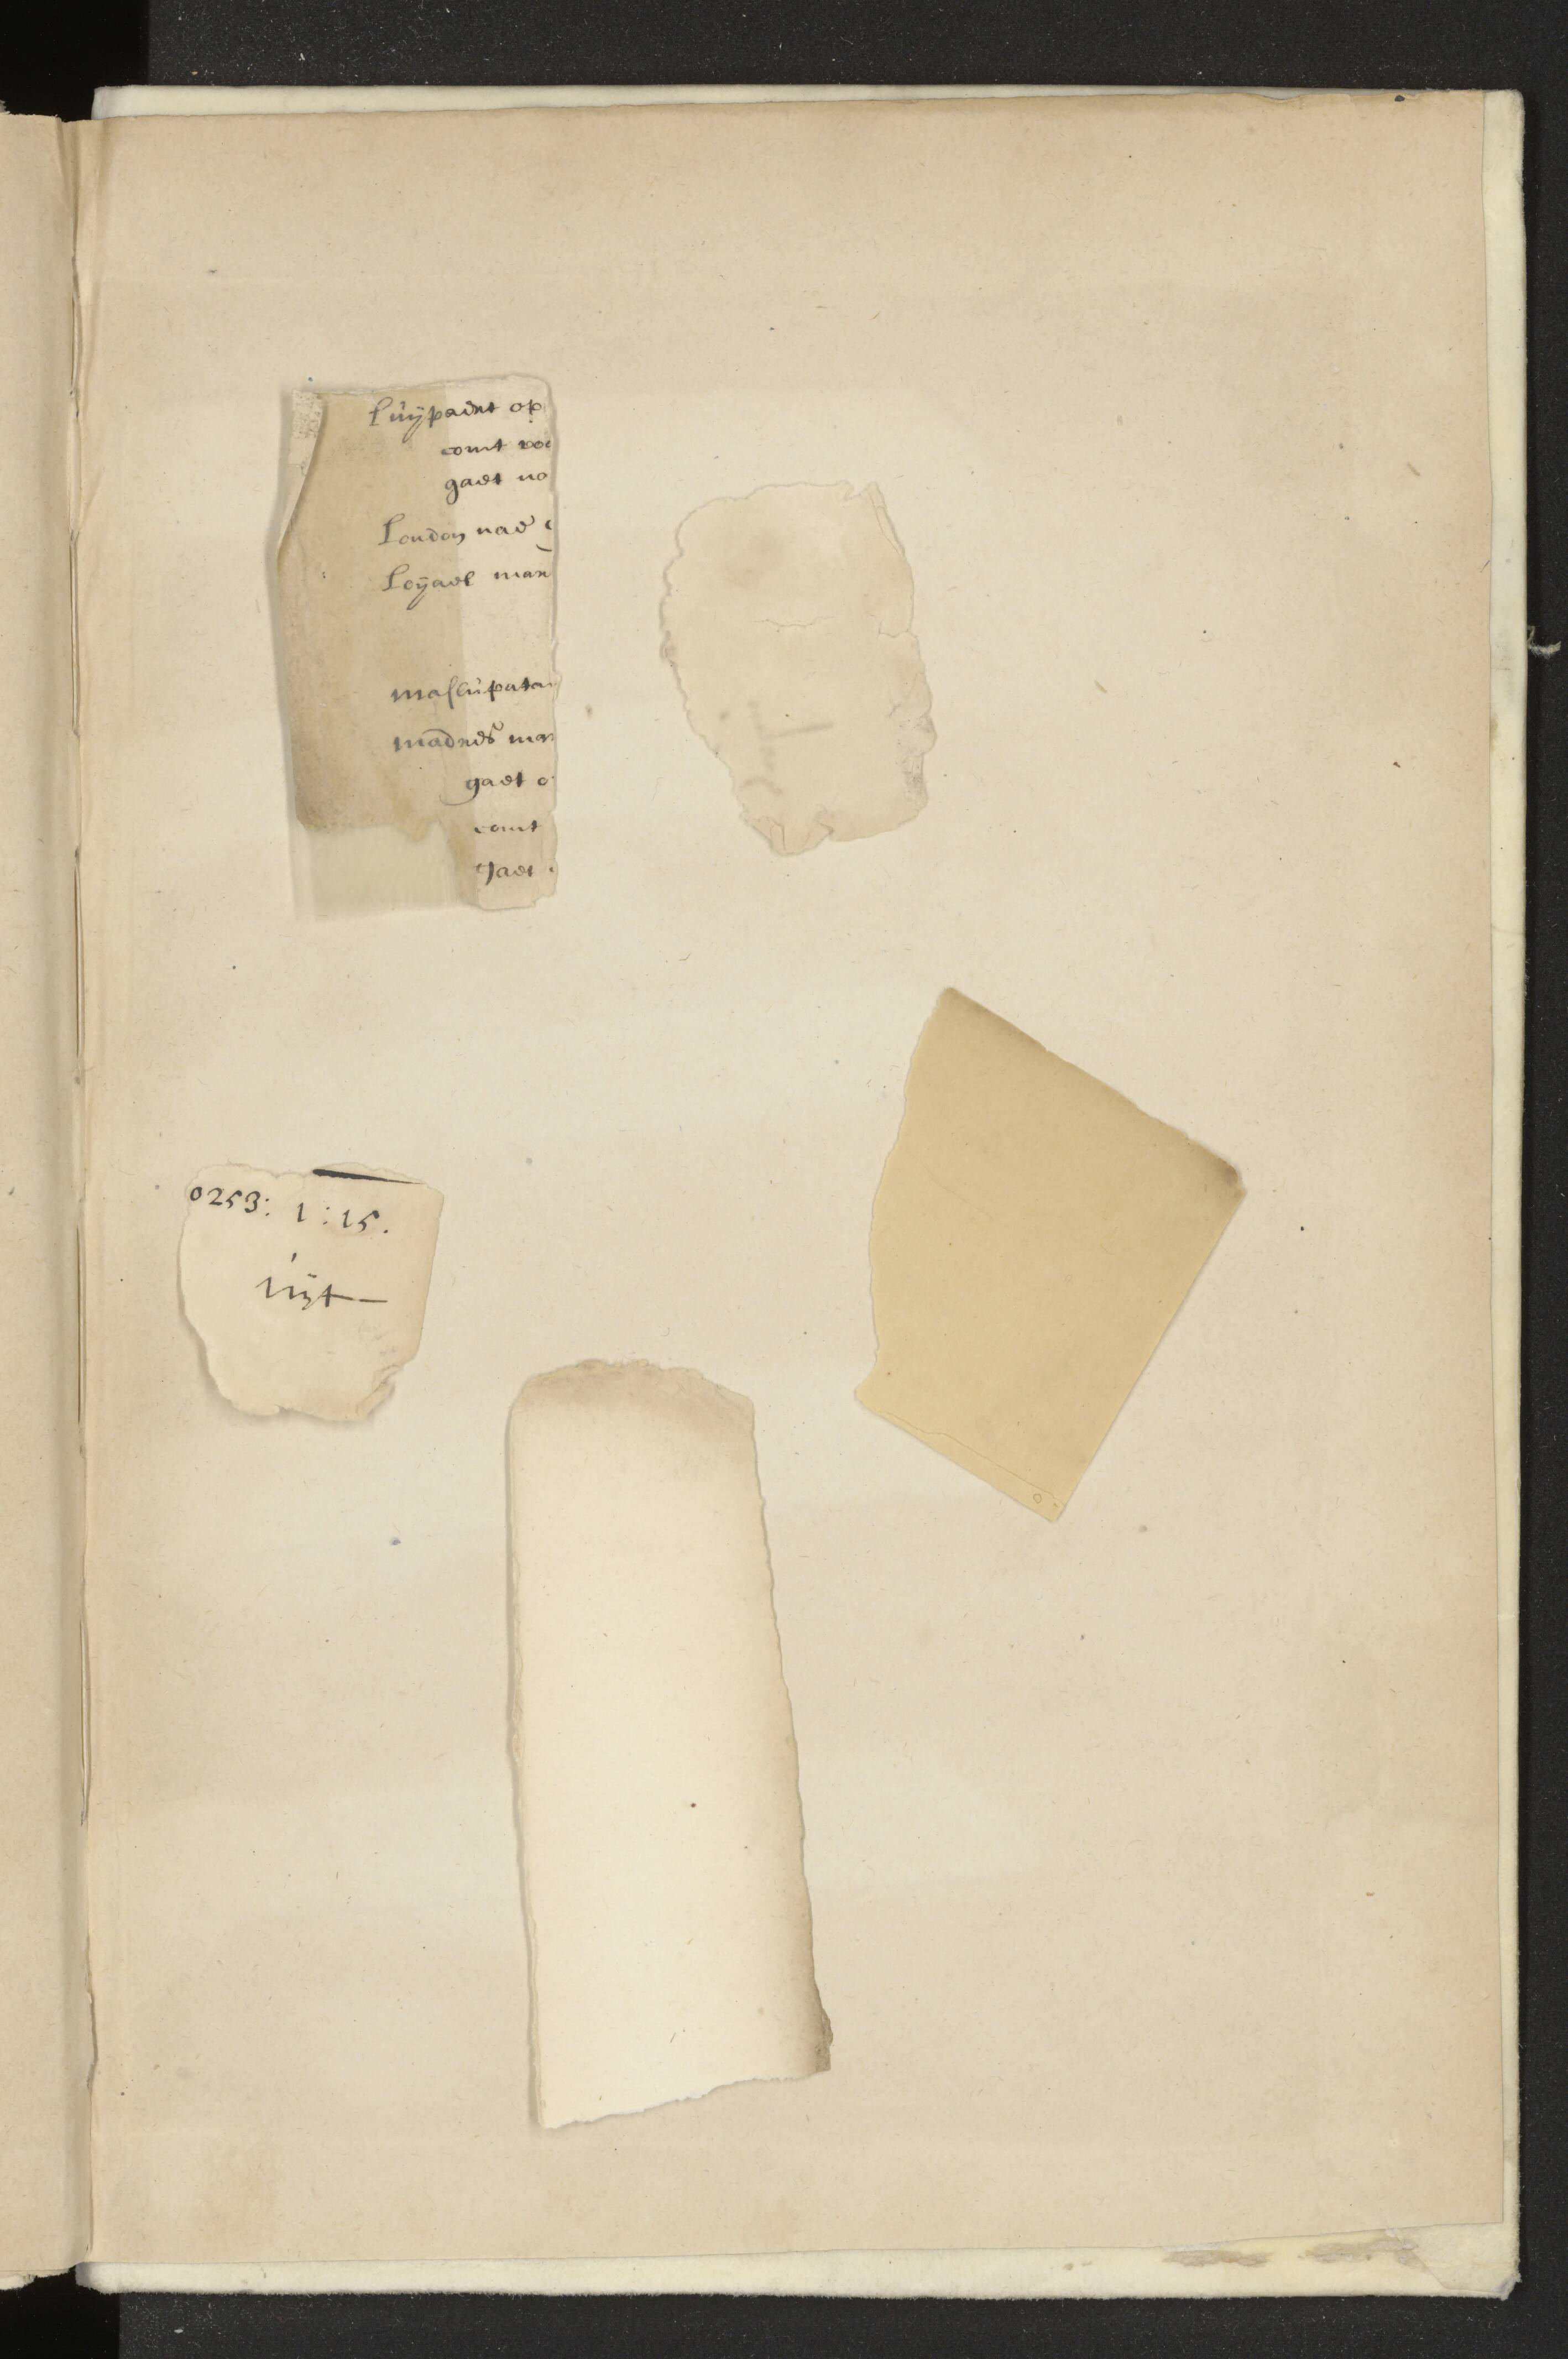 Luÿpaert op
comt voo
gaet na
London nae
Loÿael man
maslupatam
madres man
gaet o
comt
gaet
0253: 1: 15.
uÿt